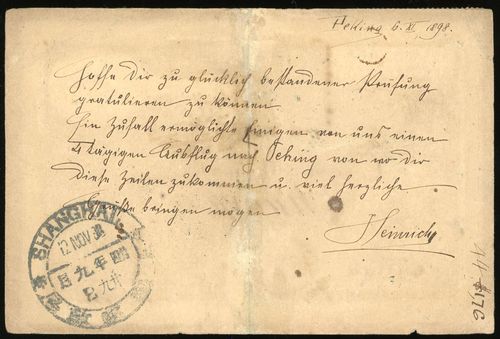 Peking 6. XI. 1898.
Hoffe Dir zu glücklich bestandener Prüfung
gratulieren zu können
Ein Zufall ermöglichte Einigen von uns einen
4 tägigen Ausflug nach Peking von wo Dir
diese Zeilen zukommen u. viel herzliche
Grüße bringen mögen
Heinrich
SHANGHAI
12 NOV 98
年九
月